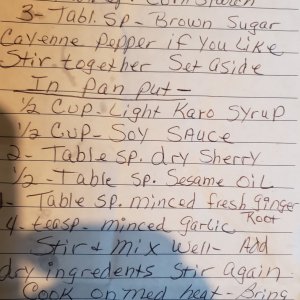 Corn Starch
3- Tabl. Sp - Brown Sugar
Cayenne Pepper if you Like
Stir together Set aside
In pan put -
1/2 Cup - Light Karo Syrup
1/2 Cup - Soy Sauce
2 - Table sp. dry Sherry
1/2 - Table Sp. Sesame Oil
Table sp. minced fresh ginger
Root
4 - teasp - minced garlic
Stir & mix well - Add
dry ingredents Stir Again
Cook on Med heat - Bring